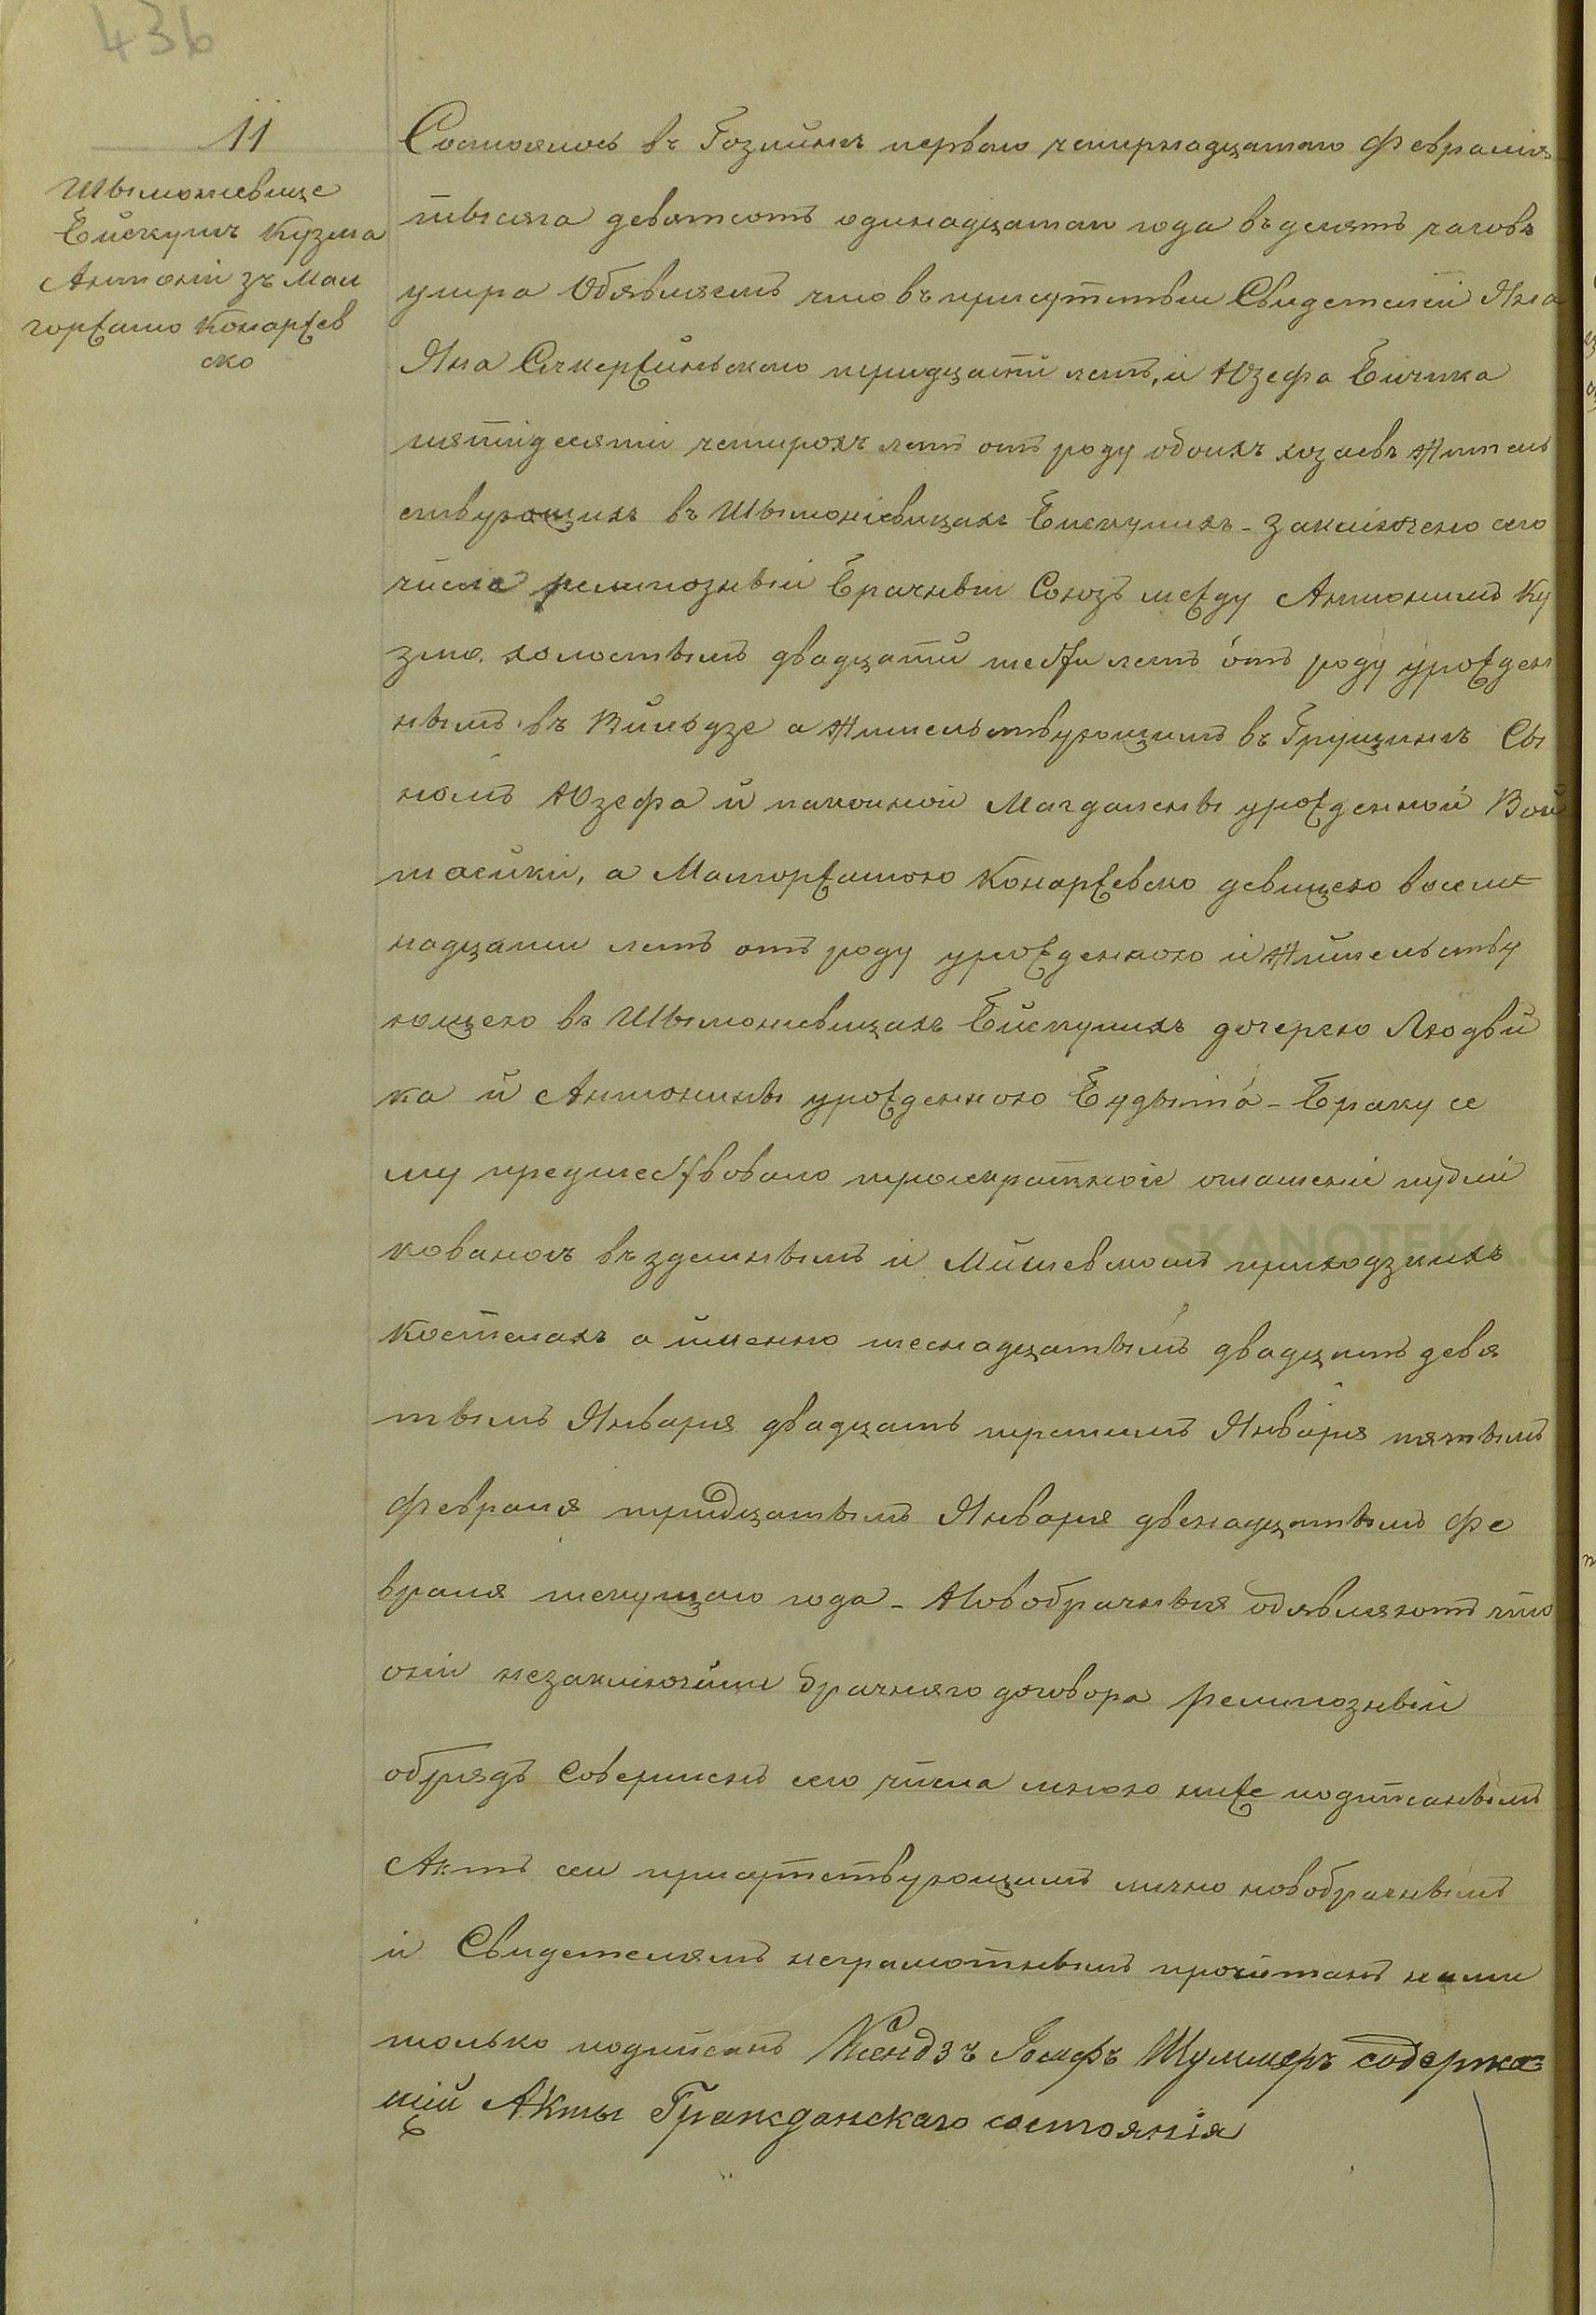 436
11
Шымоневице
Бискупихъ Кузма
Антоній зъ Мал
горжатою Конаржев
ско
Состоялось въ Гозлинѣ первого четырнадцатого Февраля
тысяча девятсотъ одинадцатаго года въ десять часовъ
утра Обявляемъ что въ присутствіи Свидетелей Яна
Яна Скержиньского тридцати летъ, и Юзефа Бичика
пятидесяти четырохъ летъ отъ роду обоихъ хозаевъ Жительствующихъ
ствующихъ въ Шымоневицахъ Бискупихъ - заключено сего
числа религіозный Брачный Союзъ между Антонимъ Ку
змо, холостымъ двадцати шести летъ отъ роду урожден
нымъ въ Вильдзе а Жительствующимъ въ Грущинѣ Сы
номъ Юзефа и покойной Магдалены урожденной Вой
тасики, а Малгоржатою Конаржевско девицею восем
надцати летъ отъ роду урожденною и Жительству
ющею въ Шымоневицахъ Бискупихъ дочерею Людви
ка и Антонины урожденною Будзыта - Браку се
му предшествовало троекратное оглашеніе публи
кованохъ въ здешнымъ и Милевскомъ приходзкихъ
костелахъ а именно шеснадцатымъ двадцать девя
тымъ Января двадцать третимъ Января пятымъ
Февраля тридцатымъ Января двенадцатымъ Фе
враля текущаго года - Новобрачныя обявляютъ что
они незаключили брачняго договора Религіозный
обрядъ совершенъ сего числа мною ниже подписанымъ
Актъ сей присутствующимъ лично новобрачнымъ
и Свидетелямъ неграмотнымъ прочитанъ нами
только подписанъ Ксендзъ Іосифъ Шуллеръ содержа=
щій Акты Гражданскаго состоянія